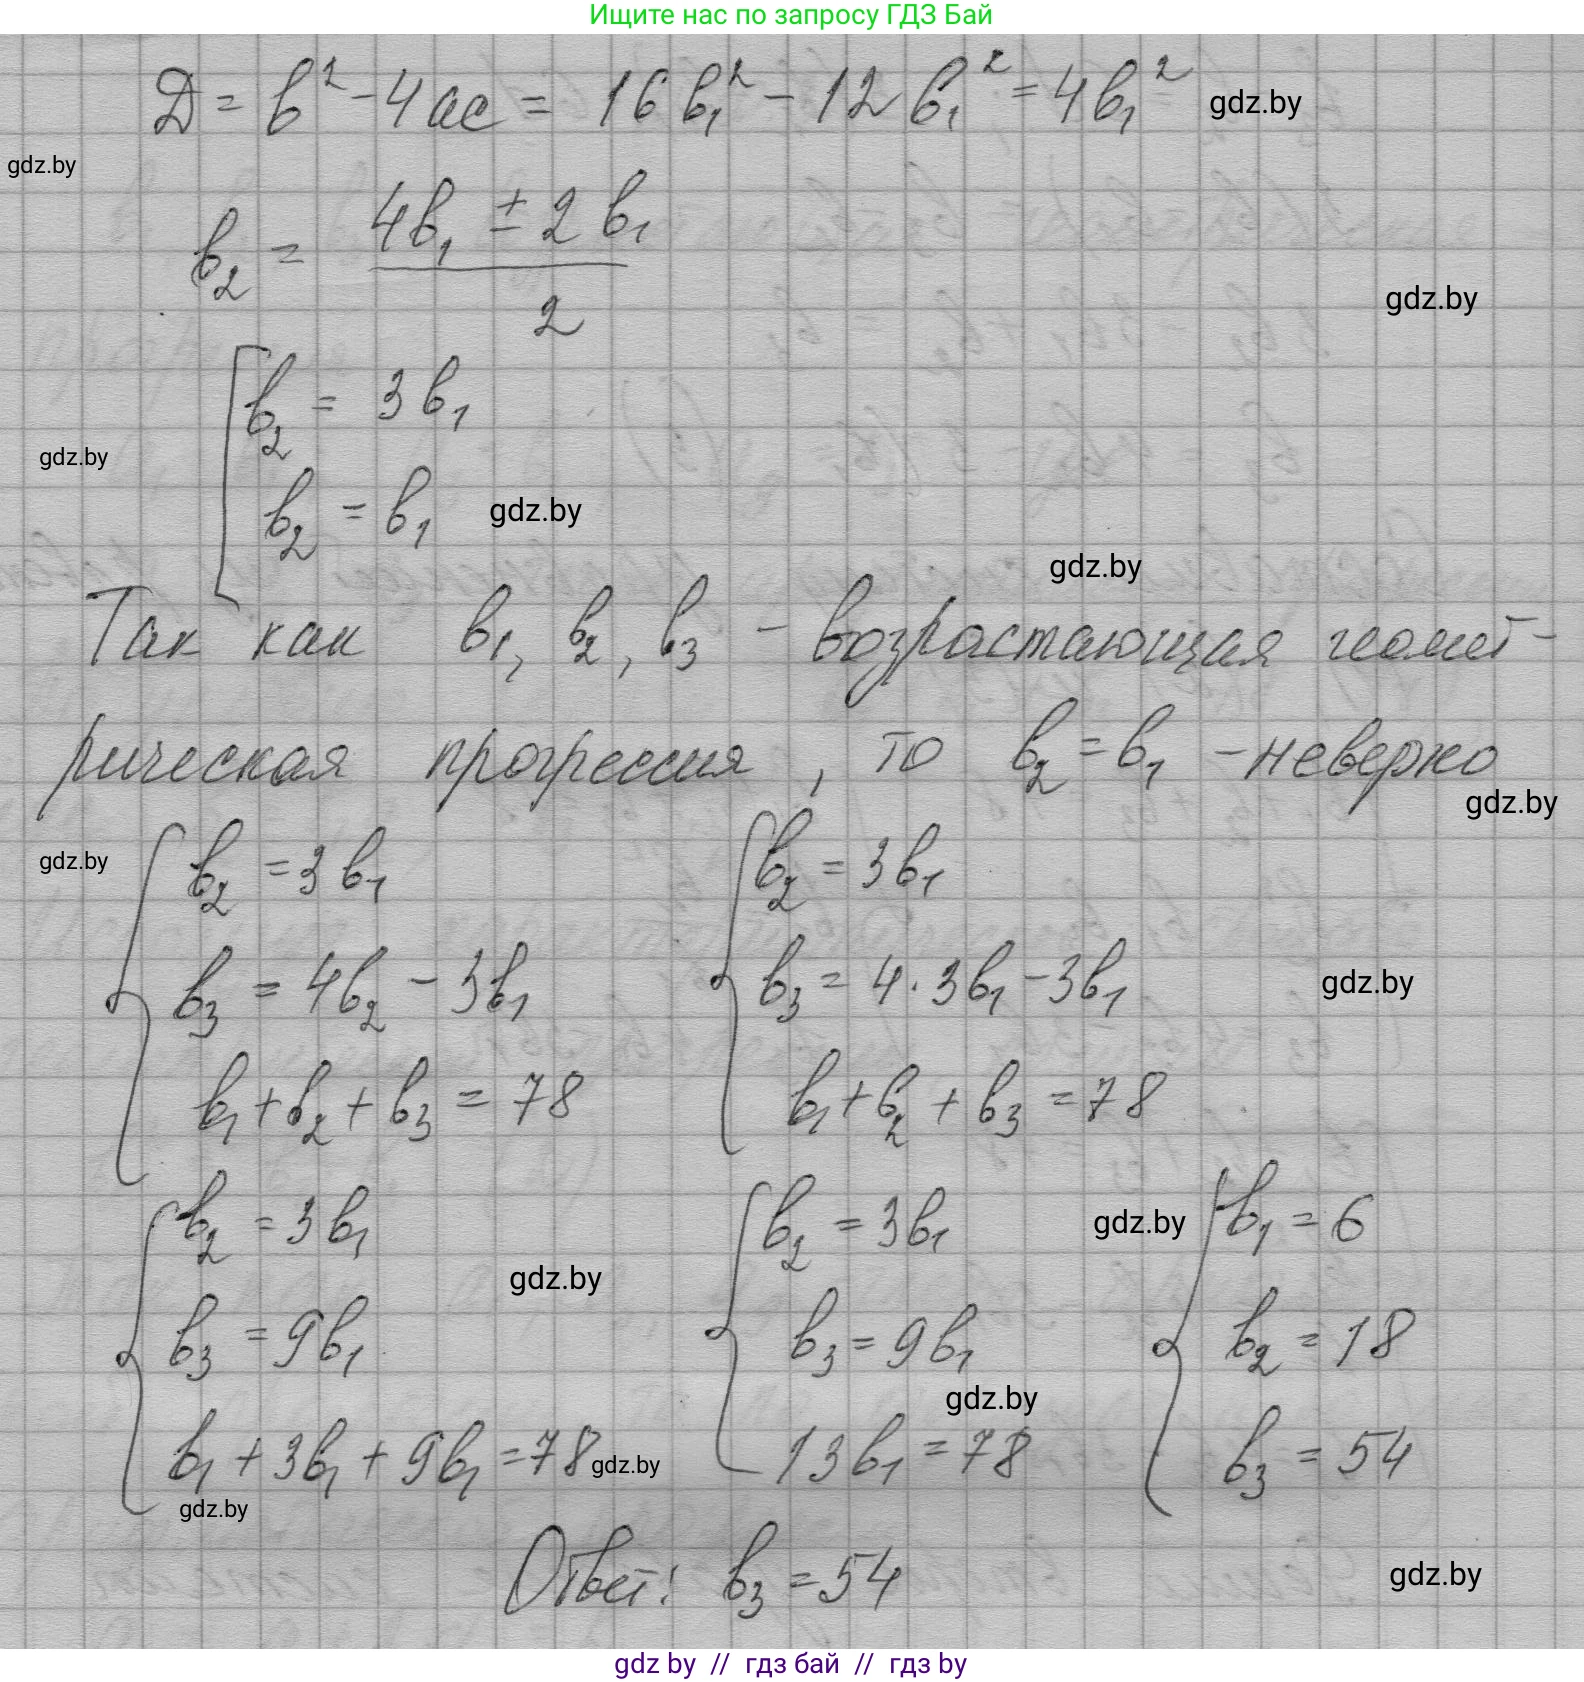 Ищите нас по запросу ГДЗ Бай
D = b² - 4ac = 16b₁² - 12b₁² = 4b₁² gdz.by
gdz.by
b₂ = (4b₁ ± 2b₁)/2
gdz.by
[ b₂ = 3b₁
gdz.by
b₂ = b₁ gdz.by
gdz.by
Так как b₁, b₂, b₃ - возрастающая геомет-
рическая прогрессия, то b₂ = b₁ - неверно
gdz.by
gdz.by
{ b₂ = 3b₁ { b₂ = 3b₁
b₃ = 4b₂ - 3b₁ b₃ = 4·3b₁ - 3b₁ gdz.by
b₁ + b₂ + b₃ = 78 b₁ + b₂ + b₃ = 78
{ b₂ = 3b₁ { b₂ = 3b₁ gdz.by { b₁ = 6
gdz.by
b₃ = 9b₁ b₃ = 9b₁ b₂ = 18
gdz.by
b₁ + 3b₁ + 9b₁ = 78 gdz.by 13b₁ = 78 b₃ = 54
gdz.by
Ответ: b₃ = 54 gdz.by
gdz by // гдз бай // гдз by